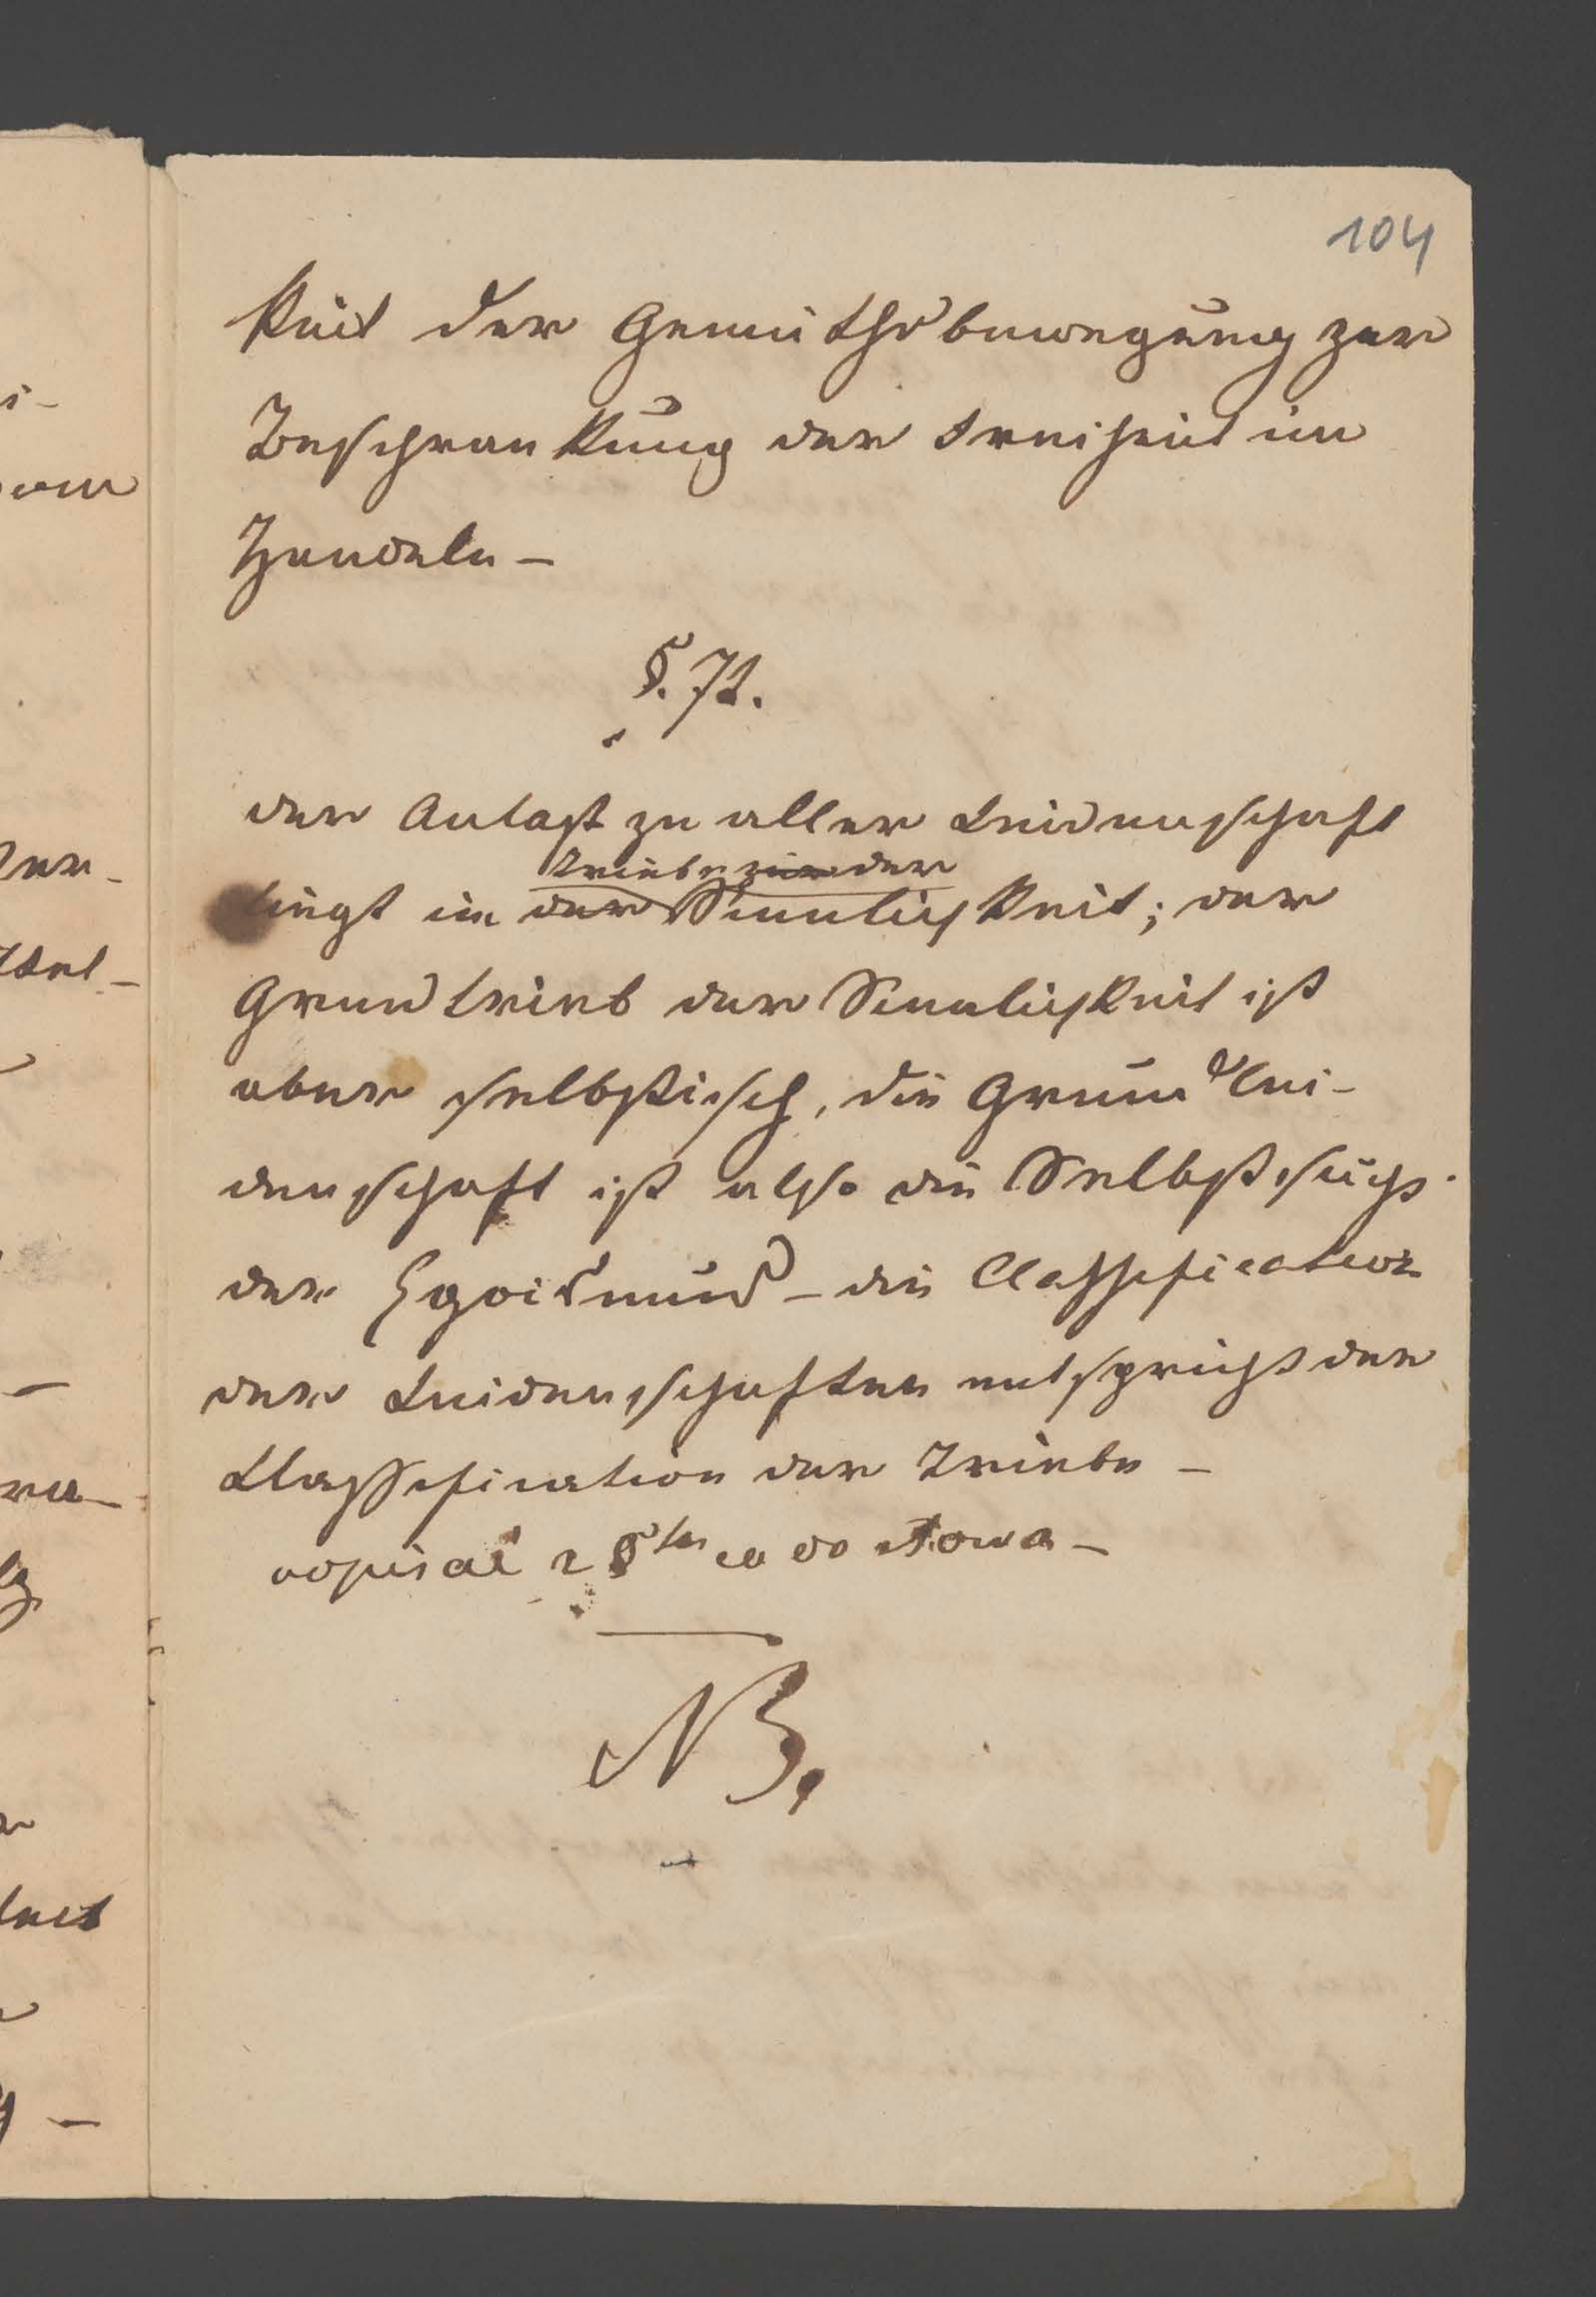 104
keit der Gemüthsbewegung zur
Beschrankung der Freiheit im
Handeln –
§. 72.
der Anlaßt zu aller Leidenschaft
Triebe zur der
liegt im der Sinnlichkeit; der
Grundtrieb der Sinnlichkeit ist
aber selbstisch, die Grundlei-
denschaft ist also die Selbstsucht
der Egoismus – die Classification
der Leidenschaften entspricht der
Classification der Triebe –
opisać 2 §ten co do słowa –
NB.